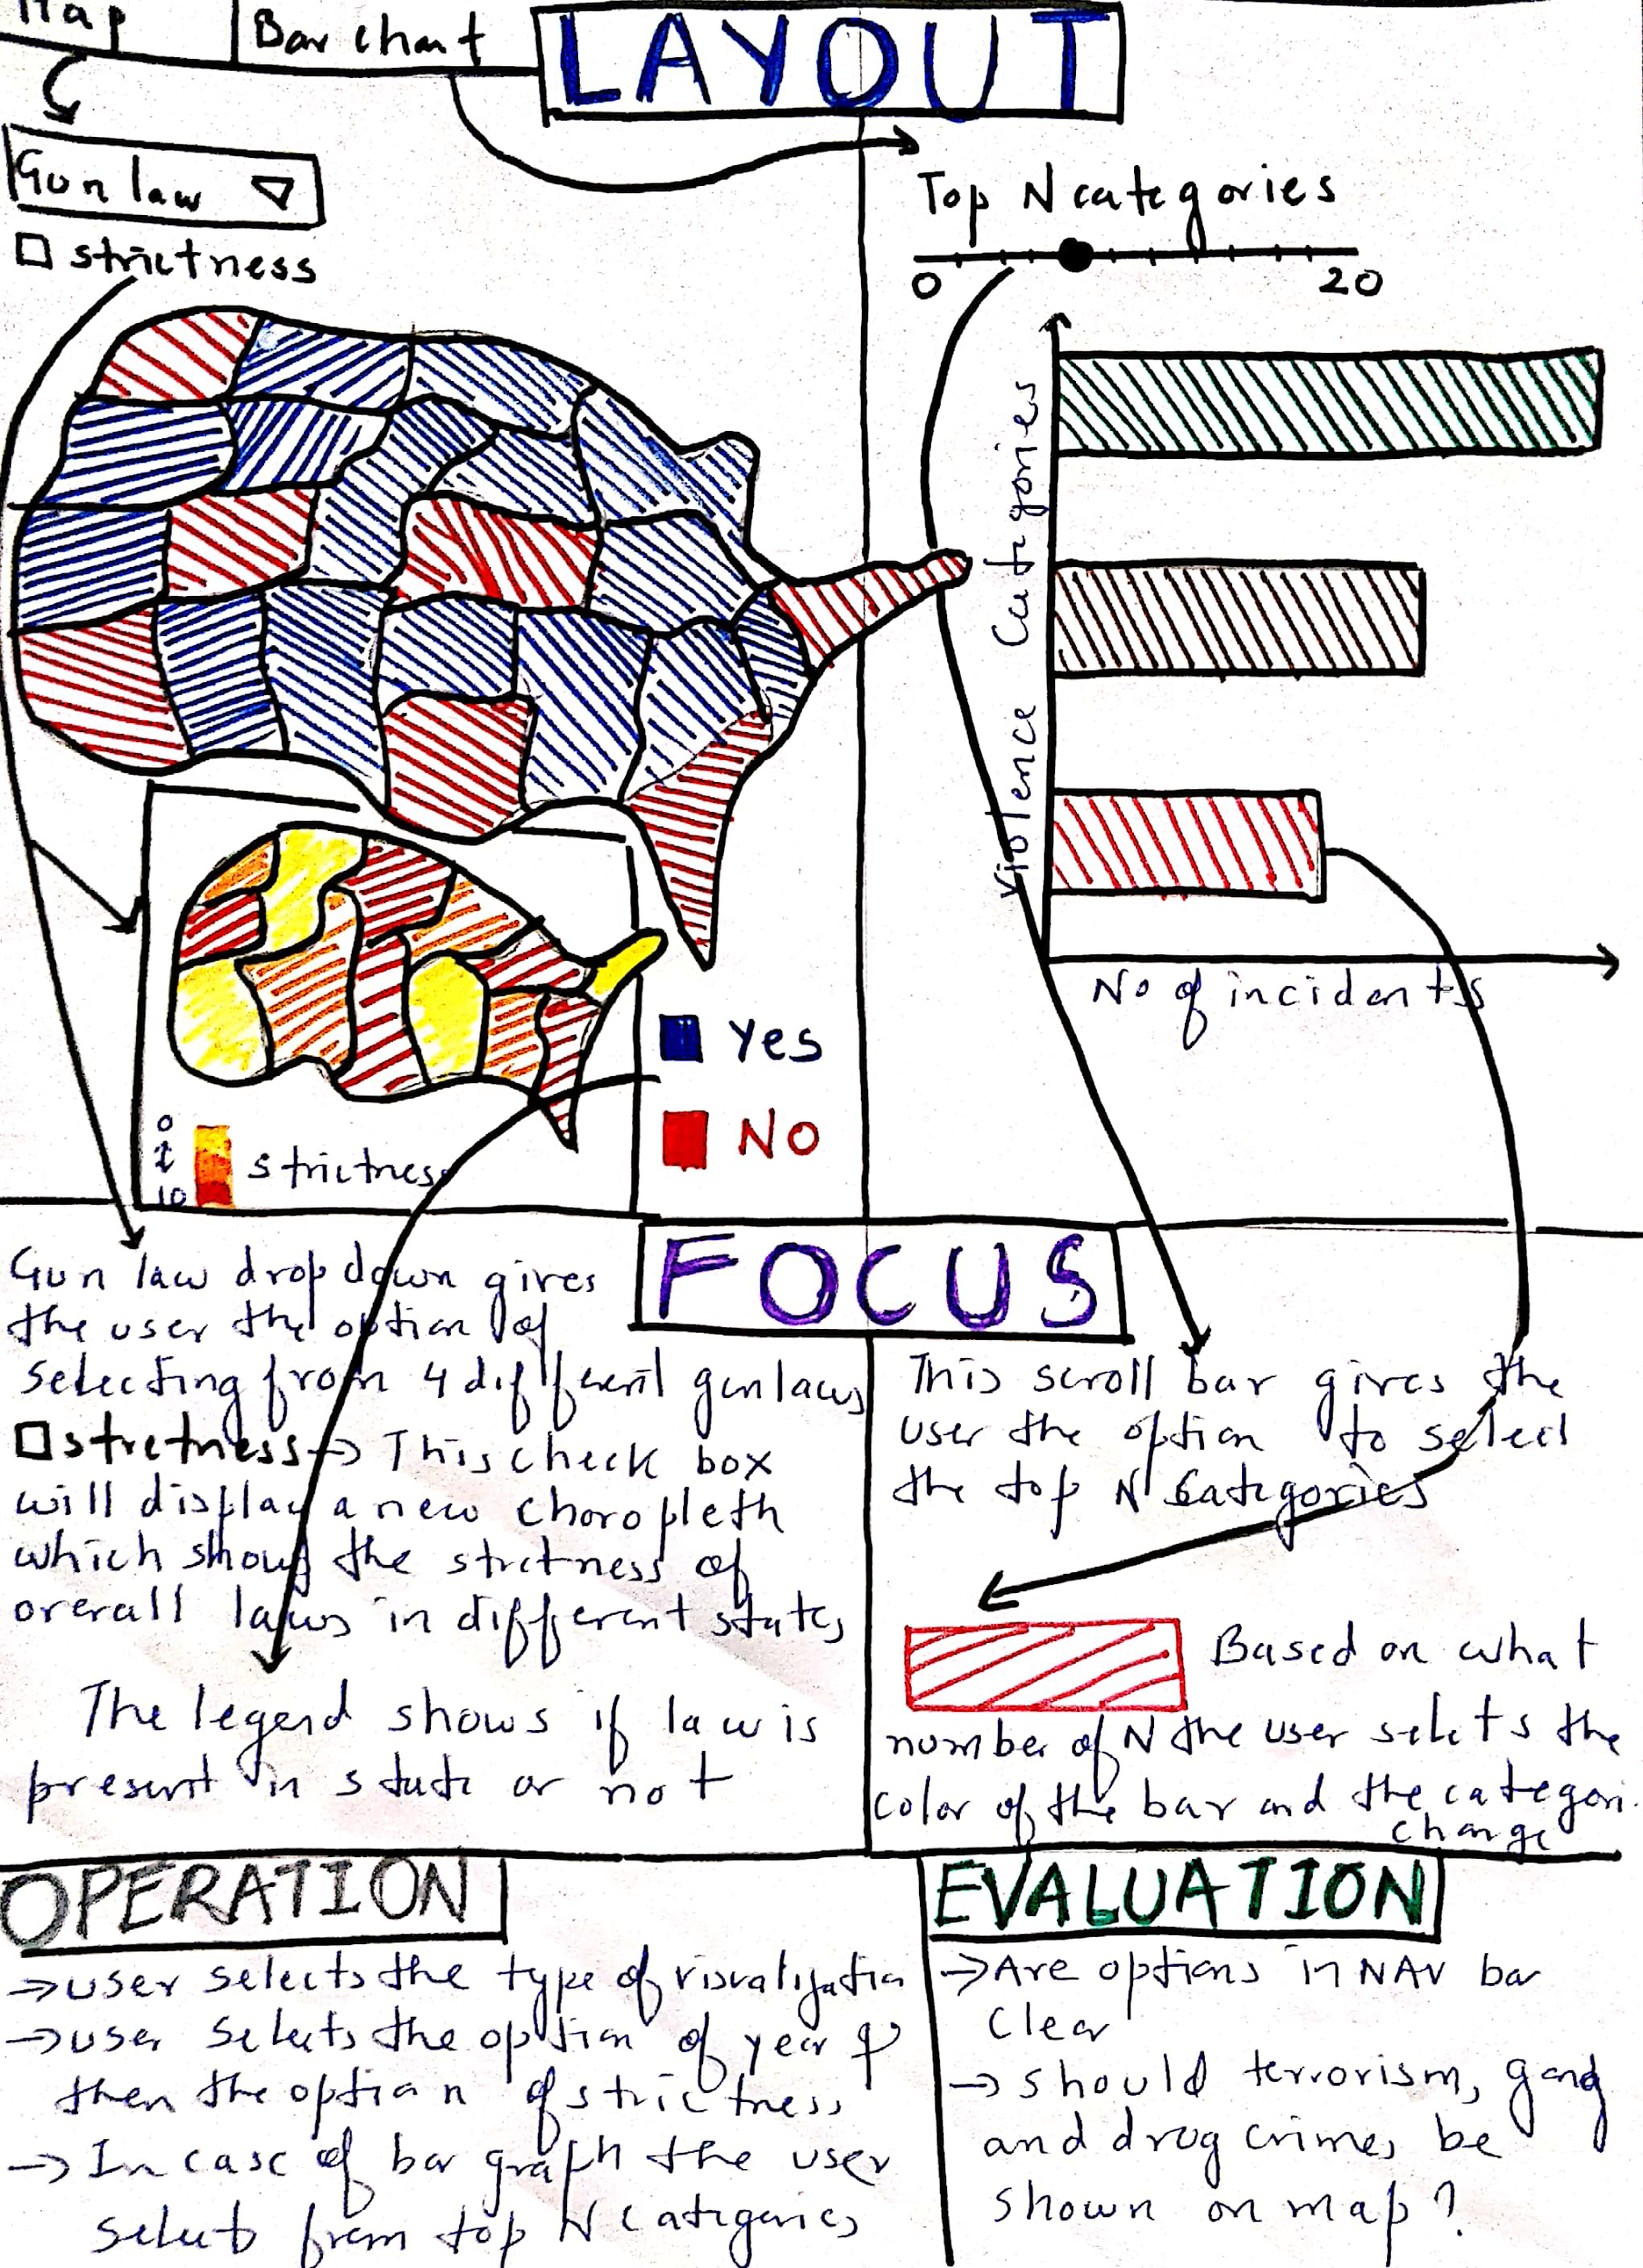 Map
Bar chart
LAYOUT
Gun law
strictness
Top N categories
0
20
Violence Categories
No of incidents
Yes
No
0
10
strictness
FOCUS
Gun law dropdown gives
the user the option of
selecting from 4 different gun laws
strctness → This check box
will display a new choropleth
which shows the strctness of
overall laws in different states
The legend shows if law is
present in state or not
This scroll bar gives the
user the option to select
the top N Categories
Based on what
number of N the user selcts the
color of the bar and the categori
change
OPERATION
→ user selects the type of visualization
→ user selects the option of year &
then the option of strictness
→ In case of bar graph the user
select from top N Categories
EVALUATION
→ Are options in NAV bar
clear
→ should terrorism, gang
and drug crimes be
shown on map?